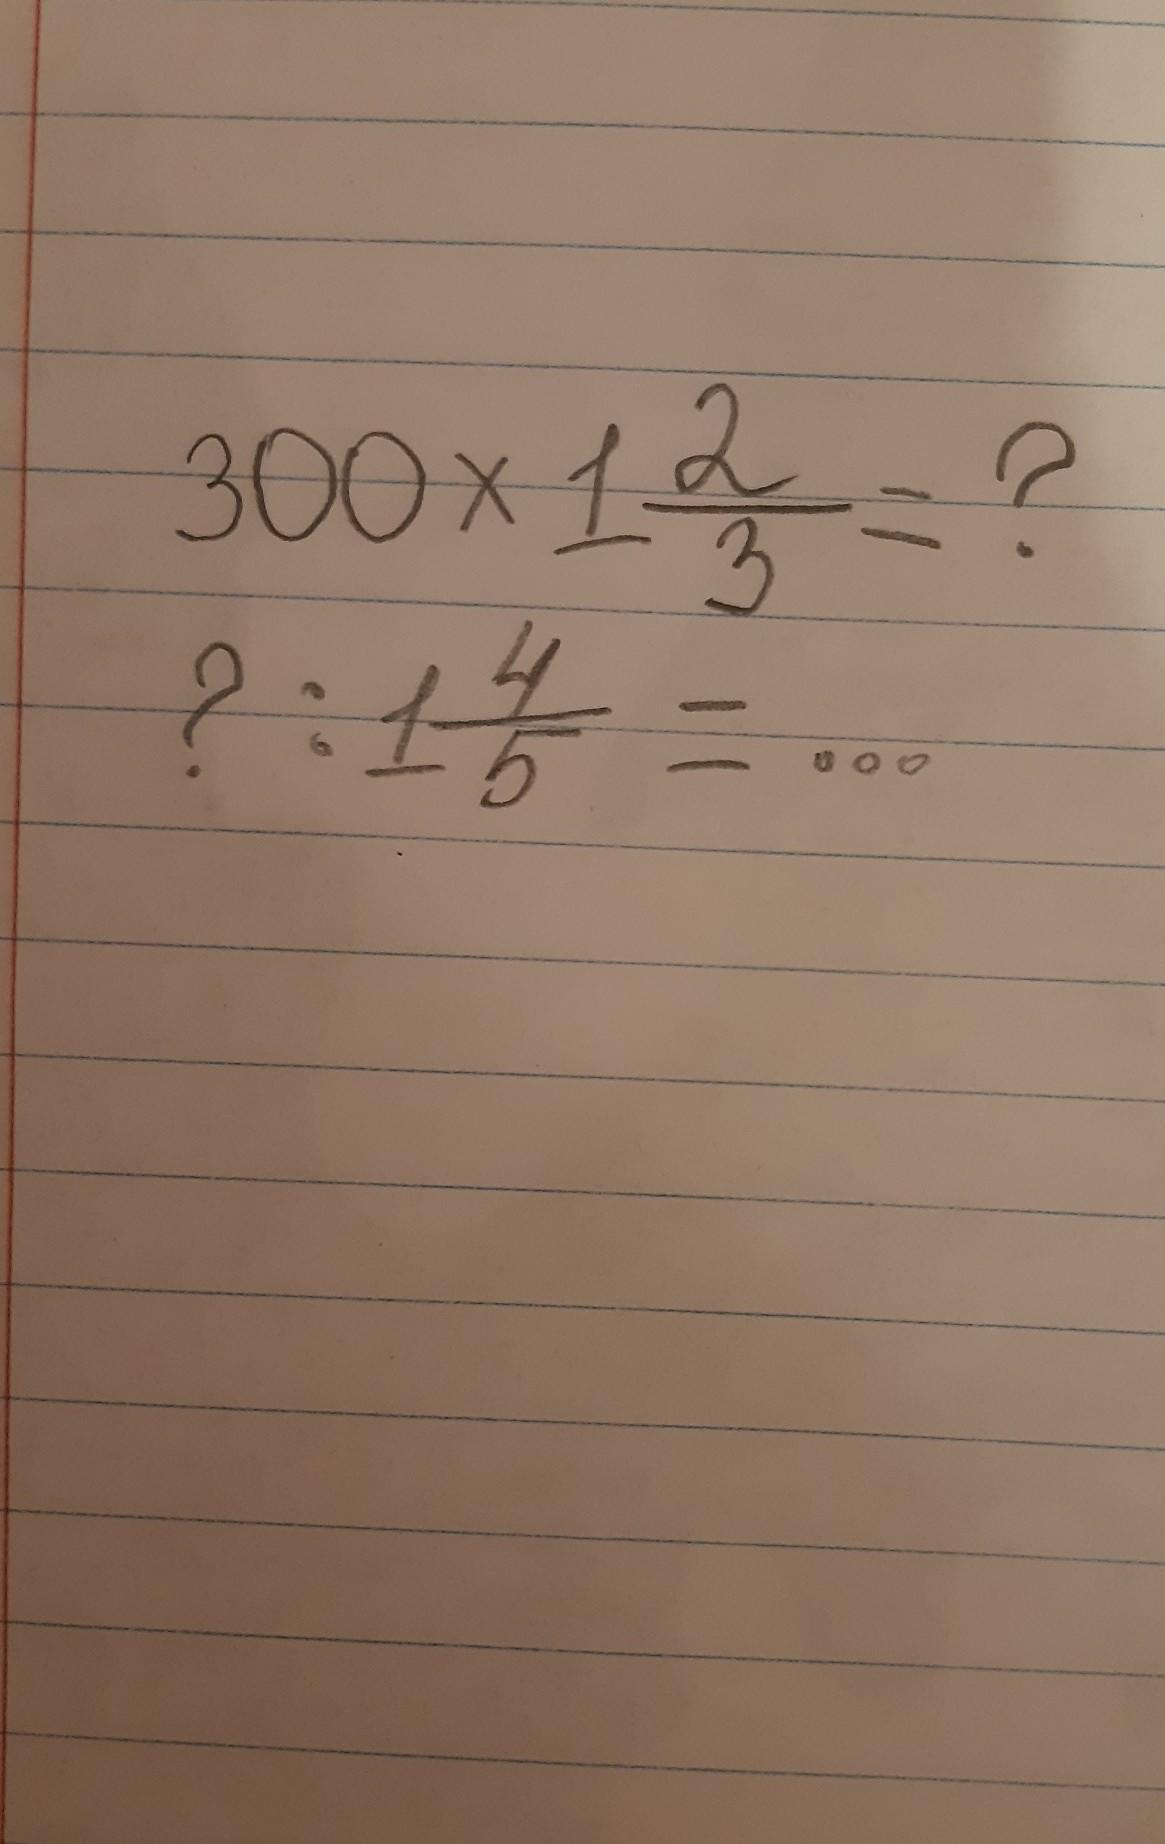 300 × 1 2/3 = ?
? : 1 4/5 = ...